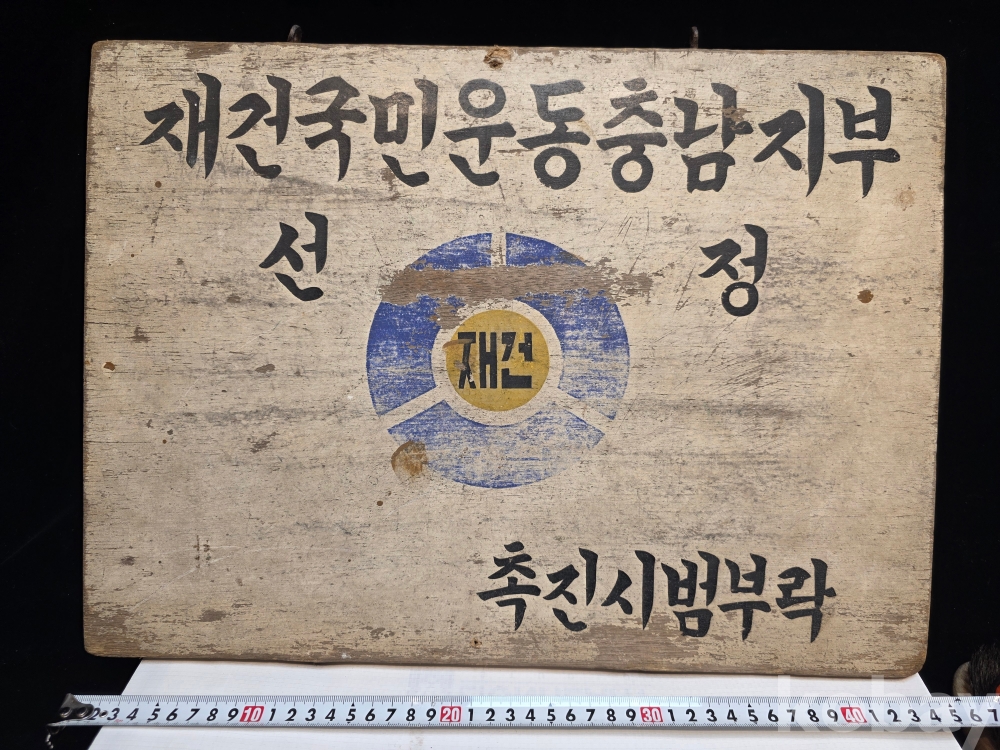 재건국민운동충남지부
선 정
재건
촉진시범부락
2 3 4 5 6 7 8 9 10 1 2 3 4 5 6 7 8 9 20 1 2 3 4 5 6 7 8 9 30 1 2 3 4 5 6 7 8 9 40 1 2 3 4 5 6 7